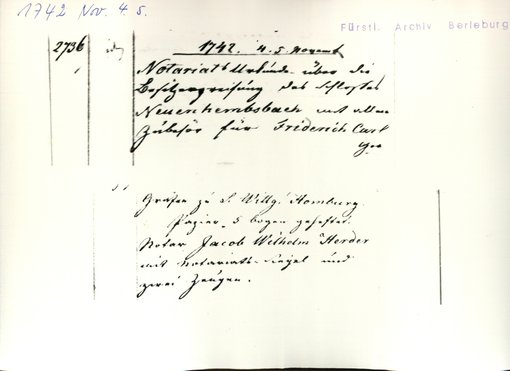 1742 Nov. 4. 5.
Fürstl. Archiv Berleburg
2736
1742. 4. 5. Novemb.
Notariats Urkunde über die
Besitzergreifung des Schlosses
Neuenhembsbach mit allem
Zubehör für Friderich Carl
Grafen zu S. Wittg. Homburg.
Papier, 5 bogen geheftet.
Notar Jacob Wilhelm Herder
mit Notariats-Siegel und
zwei Zeugen.